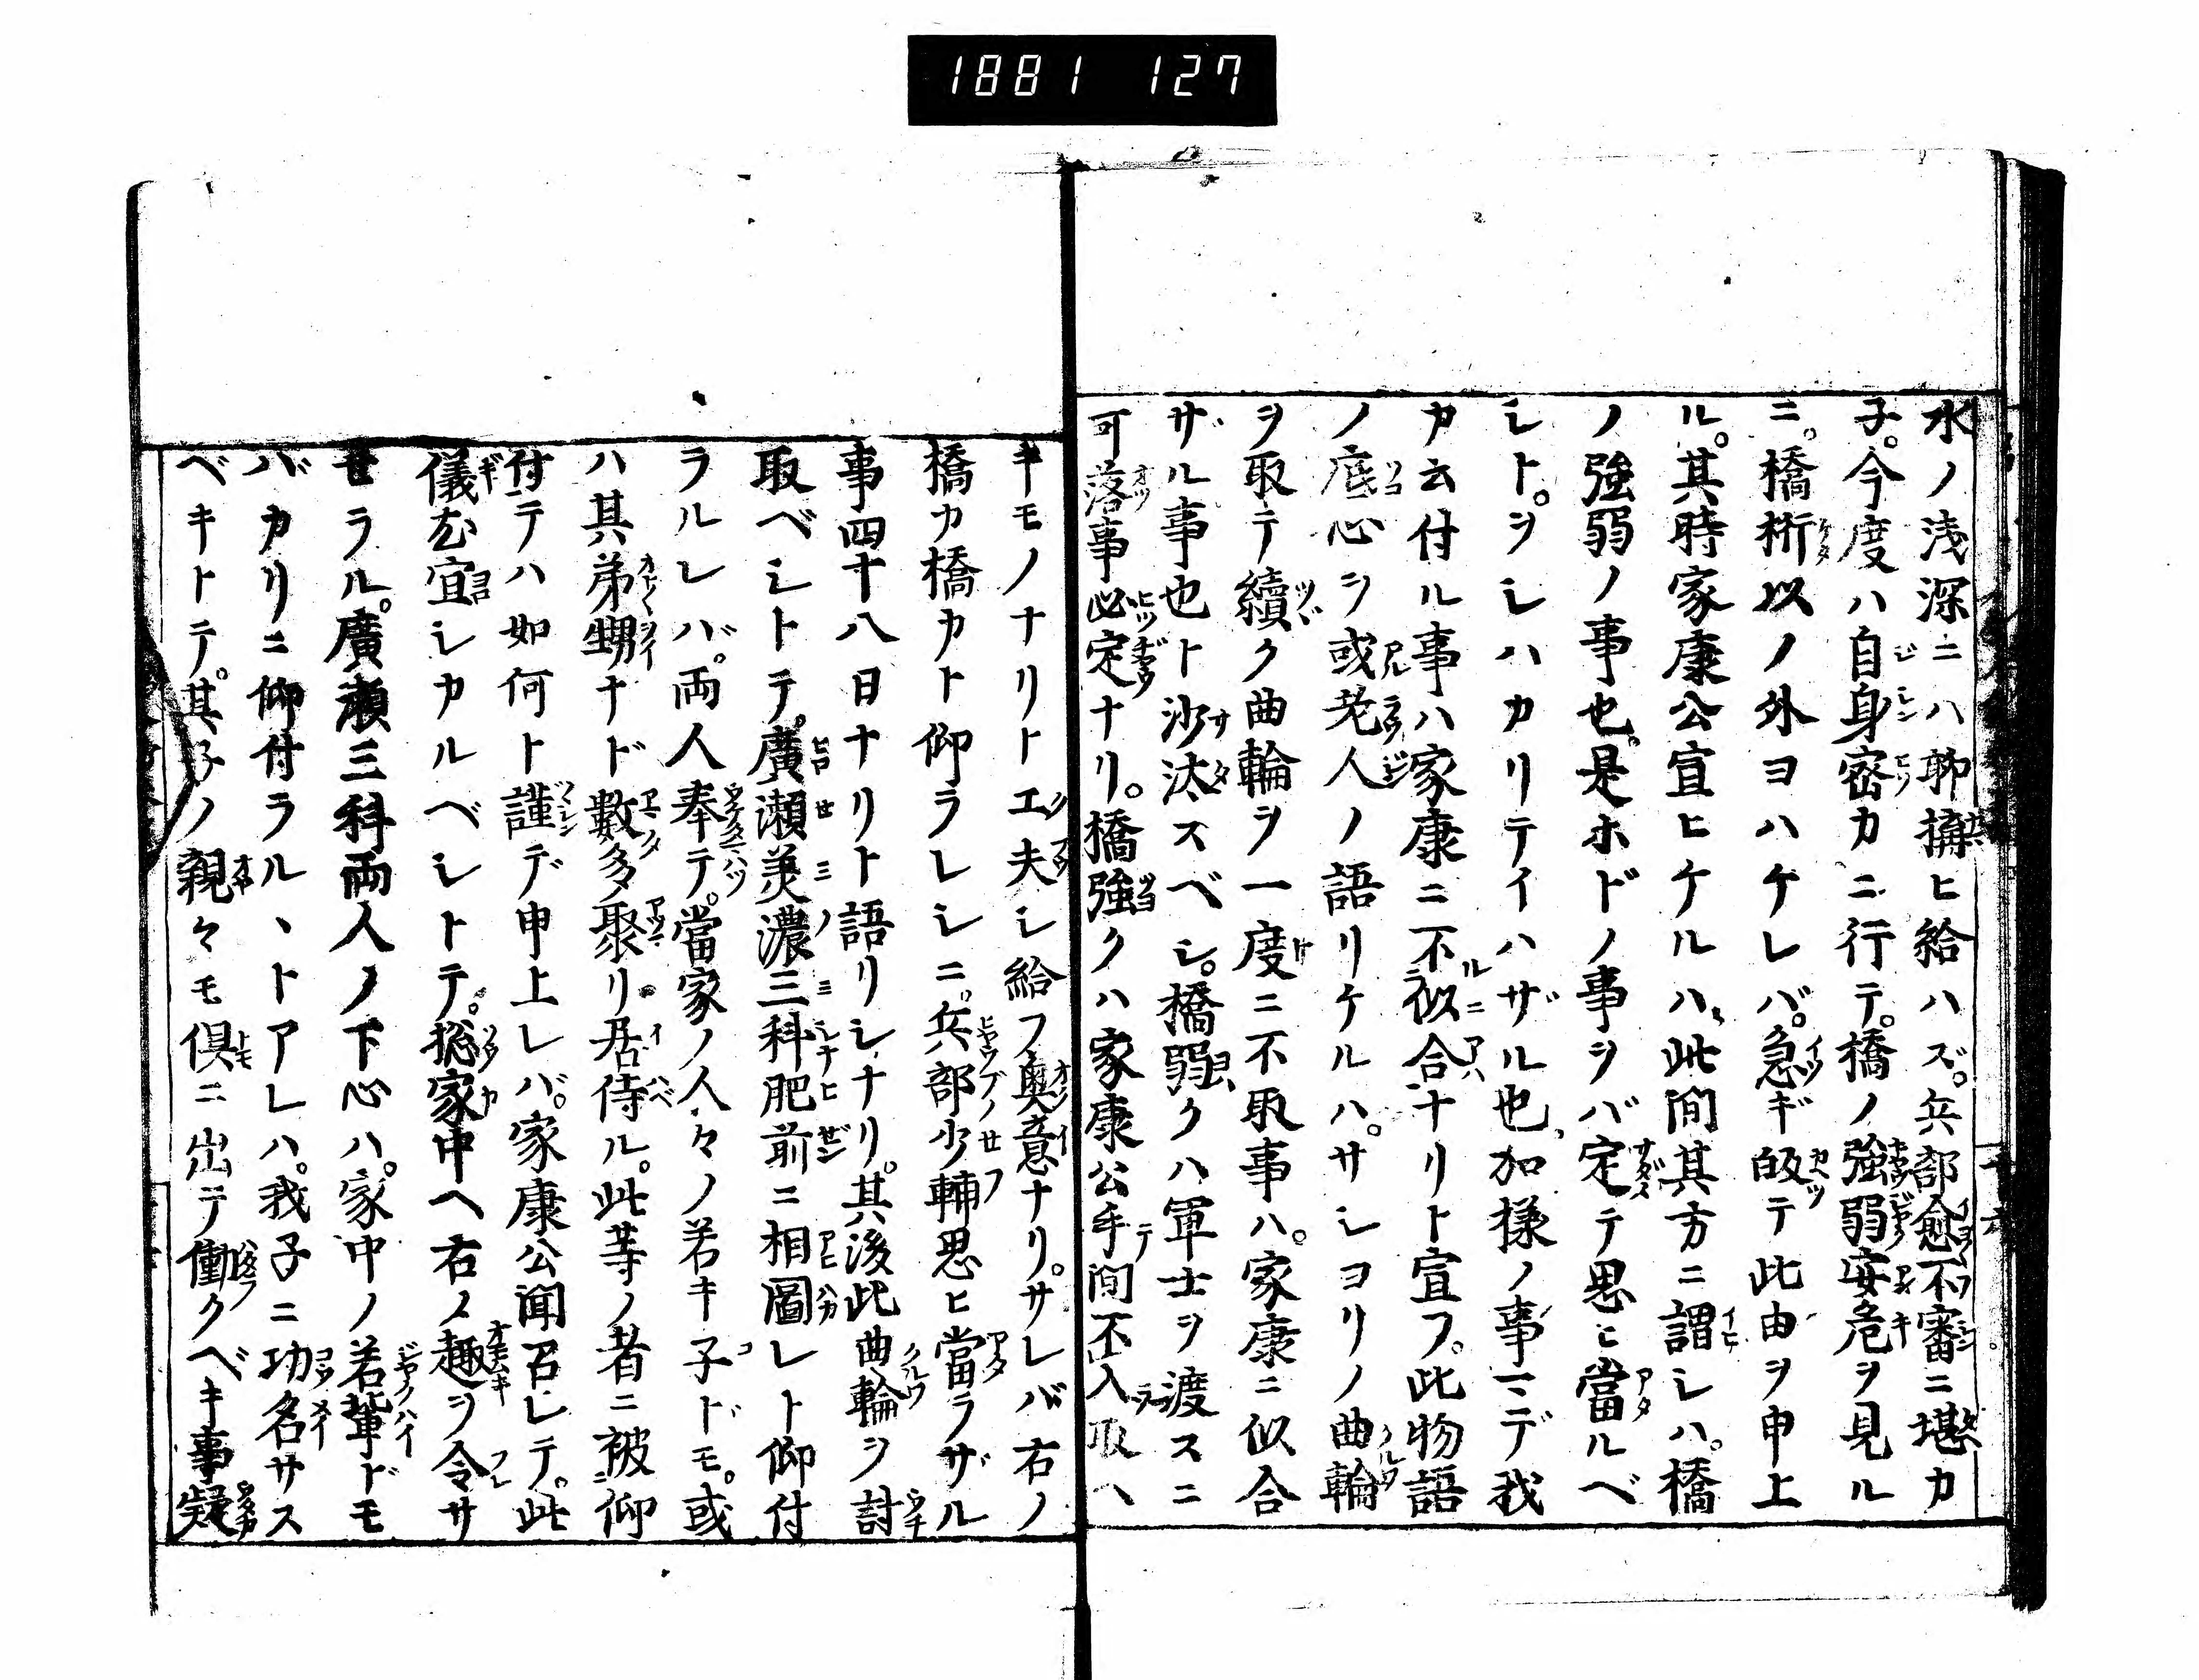 1881 127
水ノ浅深ニハ聊搆ヒ給ハズ。兵部愈不審ニ堪カ
子。今度ハ自身密カニ行テ。橋ノ強弱安危ヲ見ル
ニ。橋桁以ノ外ヨハケレバ。急ギ皈テ此由ヲ申上
ル。其時家康公宣ヒケルハ、此間其方ニ謂シハ。橋
ノ強弱ノ事也。是ホドノ事ヲバ定テ思ヒ當ルベ
シト。ヲシハカリテイハザル也、加様ノ事マデ我
カ云付ル事ハ家康ニ不似合ナリト宣フ。此物語
ノ底心ヲ或老人ノ語リケルハ。サシコリノ曲輪
ヲ取テ續ク曲輪ヲ一度ニ不取事ハ。家康ニ似合
ザル事也ト沙汰スベシ。橋弱クハ軍士ヲ渡スニ
可落事必定ナリ。橋強クハ家康公手間不入取ヘ
キモノナリト工夫シ給フ奥意ナリ。サレバ右ノ
橋カ橋カト仰ラレシニ。兵部少輔思ヒ當ラザル
事四十八日ナリト語リシナリ。其後此曲輪ヲ討
取ベシトテ。廣瀬美濃三科肥前ニ相圖シト仰付
ラルレバ。両人奉テ。當家ノ人々ノ若キ子ドモ。或
ハ其弟甥ナド數多聚リ居侍ル。此等ノ者ニ被仰
付テハ如何ト謹デ申上レバ。家康公聞召レテ。此
儀尤宜シカルベシトテ。惣家中ヘ右ノ趣ヲ令サ
せラル。廣瀬三科両人ノ下心ハ。家中ノ若輩ドモ
バカリニ仰付ラルヽトアレハ。我子ニ功名サス
ベキトテ。其子ノ親々モ倶ニ出テ働クベキ事疑